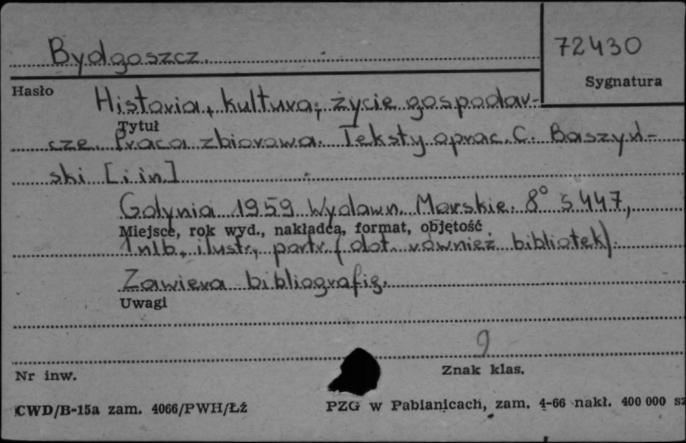 Bydgoszcz.
72430
Hasło
Sygnatura
Historia, kultura, życie gospodar-
Tytuł
cze. Praca zbiorowa. Teksty oprac. C. Baszyń-
ski [i in.]
Gdynia 1959 Wydawn. Morskie. 8° s 447,
Miejsce, rok wyd., nakładca, format, objętość
1 nlb., ilustr., portr. (dot. również bibliotek).
Zawiera bibliografię.
Uwagi
9
Nr inw.
Znak klas.
CWD/B-15a zam. 4066/PWH/Łź
PZG w Pabianicach, zam. 4-66 nakł. 400 000 sz